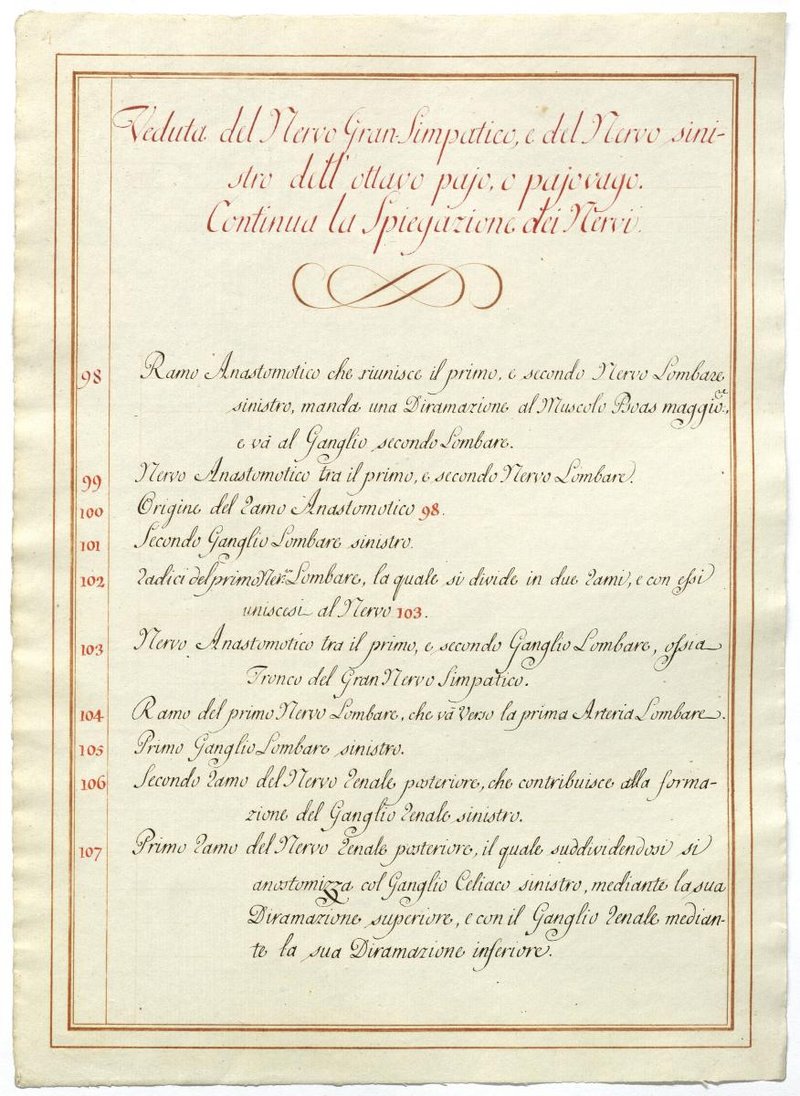 Veduta del Nervo Gran Simpatico, e del Nervo sini-
stro dell'ottavo pajo, o pajovago.
Continua la Spiegazione dei Nervi.
98 Ramo Anastomotico che riunisce il primo, e secondo Nervo Lombare
sinistro, manda una Diramazione al Muscolo Psoas maggio.re,
e vá al Ganglio secondo Lombare.
99 Nervo Anastomotico tra il primo, e secondo Nervo Lombare.
100 Origine del ramo Anastomotico 98.
101 Secondo Ganglio Lombare sinistro.
102 radici del primo Ner.vo Lombare, la quale si divide in due rami, e con essi
uniscesi al Nervo 103.
103 Nervo Anastomotico tra il primo, e secondo Ganglio Lombare, ossia
Tronco del Gran Nervo Simpatico.
104 Ramo del primo Nervo Lombare, che vá verso la prima Arteria Lombare.
105 Primo Ganglio Lombare sinistro.
106 Secondo ramo del Nervo renale posteriore, che contribuisce alla forma-
zione del Ganglio renale sinistro.
107 Primo ramo del Nervo renale posteriore, il quale suddividendosi si
anostomizza col Ganglio Celiaco sinistro, mediante la sua
Diramazione superiore, e con il Ganglio renale median-
te la sua Diramazione inferiore.